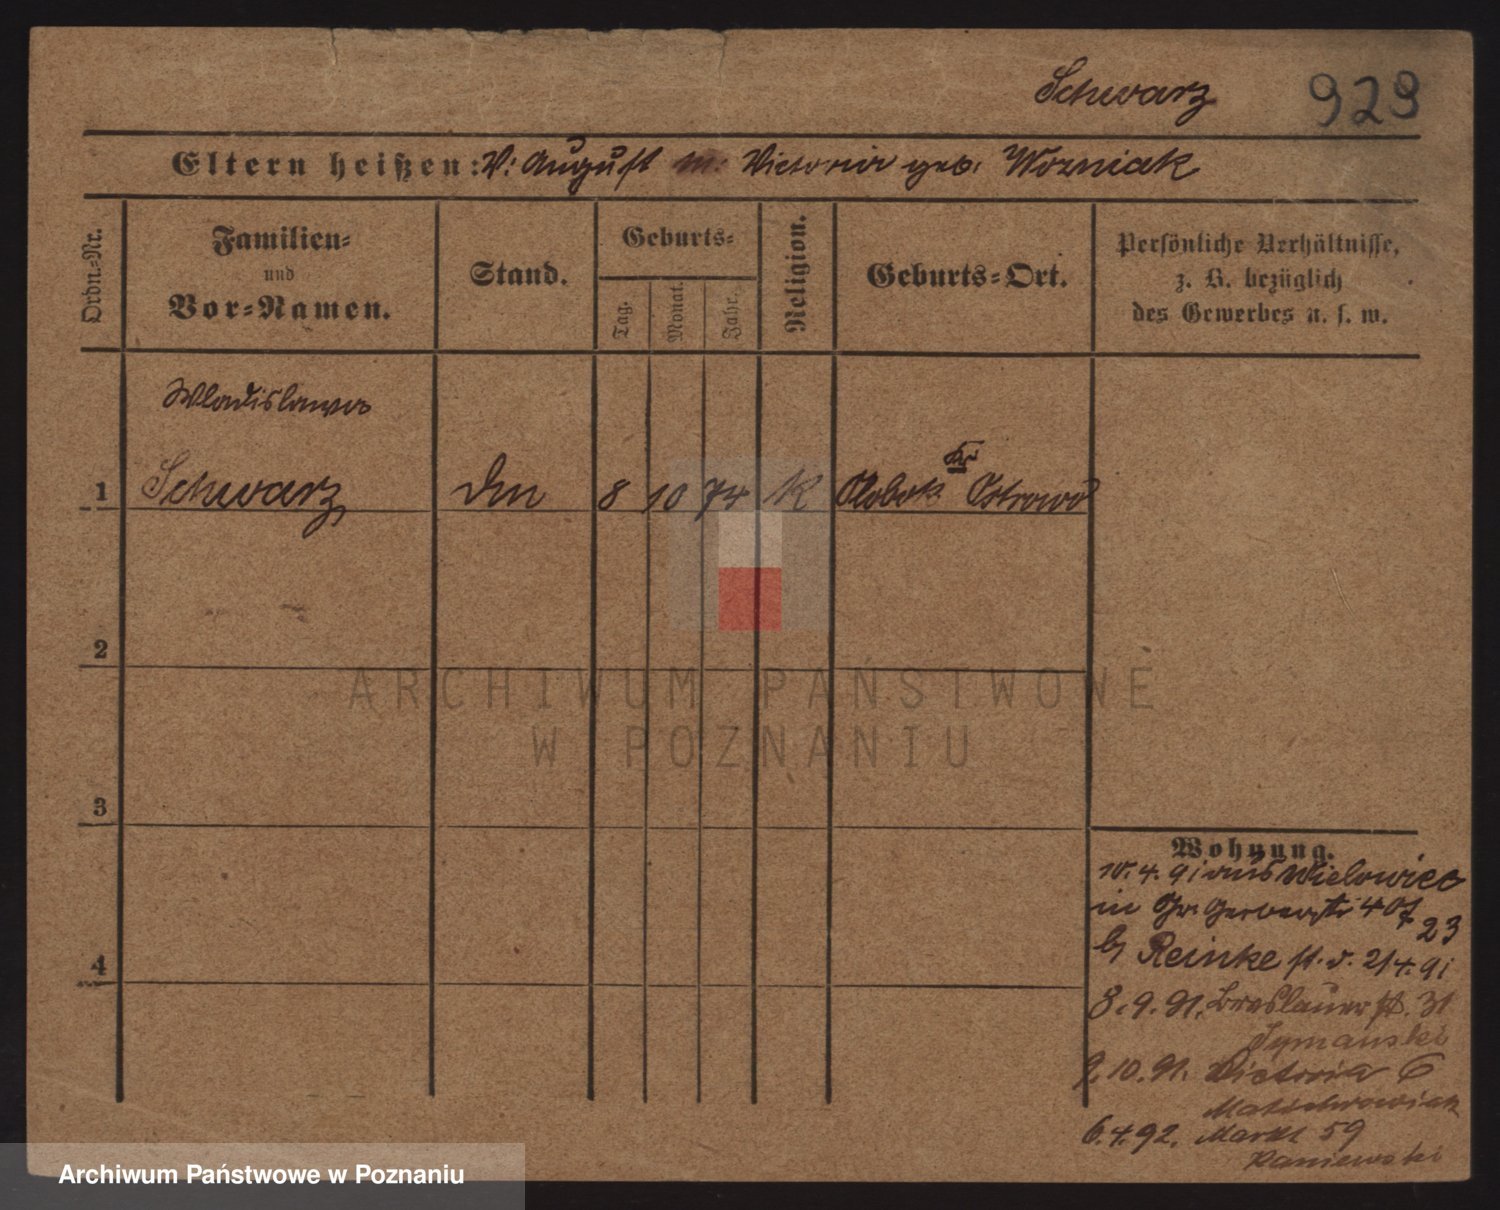 Schwarz 929
Eltern heißen: V: August M: Victoria geb. Wozniak
Ordn.-Nr.
Familien-
und
Vor-Namen.
Stand.
Geburts-
Tag.
Monat.
Jahr.
Religion.
Geburts-Ort.
Persönliche Verhältnisse,
z. B. bezüglich
des Gewerbes u. s. w.
Wladislawa
Kr
1 Schwarz, 8 10 74 K Olobok Ostrowo
2
3
4
Wohnung.
10.4.91 aus Wielowies
in Gr. Gerberstr 40
23
b/ Reinke 21/4.91
8.9.91. Breslauer st. 31
Szymanski
9.10.91. Victoria 6
6.4.92. Markt 59
Kaniewski
ARCHIWUM PAŃSTWOWE
W POZNANIU
Archiwum Państwowe w Poznaniu